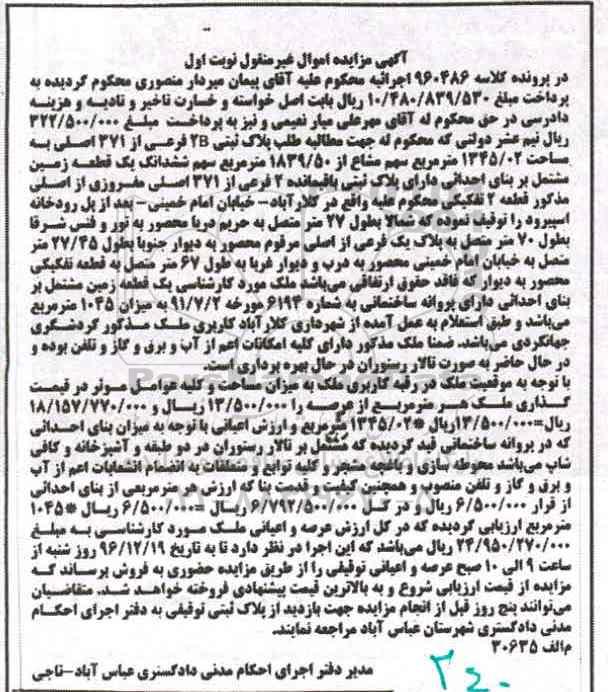 آگهی مزایده اموال غیرمنقول نوبت اول
در پرونده کلاسه ۹۶۰۴۸۶ اجرائیه محکوم علیه آقای پیمان میردار منصوری محکوم گردیده به
پرداخت مبلغ ۱۰/۴۸۰/۸۳۹/۵۳۰ ریال بابت اصل خواسته و خسارت تاخیر و تادیه و هزینه
دادرسی در حق محکوم له آقای مهرعلی میار نعیمی و نیز به پرداخت مبلغ ۳۲۲/۵۰۰/۰۰۰
ریال نیم عشر دولتی که محکوم له جهت مطالبه طلب پلاک ثبتی ۲B فرعی از ۳۷۱ اصلی به
مساحت ۱۳۴۵/۰۲ مترمربع سهم مشاع از ۱۸۳۹/۵۰ مترمربع سهم ششدانگ یک قطعه زمین
مشتمل بر بنای احداثی دارای پلاک ثبتی باقیمانده ۲ فرعی از ۳۷۱ اصلی مفروزی از اصلی
مذکور قطعه ۲ تفکیکی محکوم علیه واقع در کلارآباد- خیابان امام خمینی- بعد از پل رودخانه
اسپیرود را توقیف نموده که شمالا بطول ۲۷ متر متصل به حریم دریا محصور به تور و فنس شرقا
بطول ۷۰ متر متصل به پلاک یک فرعی از اصلی مرقوم محصور به دیوار جنوبا بطول ۲۷/۴۵ متر
متصل به خیابان امام خمینی محصور به درب و دیوار غربا به طول ۶۷ متر متصل به قطعه تفکیکی
محصور به دیوار که فاقد حقوق ارتفاقی می‌باشد ملک مورد کارشناسی یک قطعه زمین مشتمل بر
بنای احداثی دارای پروانه ساختمانی به شماره ۶۱۹۴ مورخه ۹۱/۷/۲ به میزان ۱۰۴۵ مترمربع
می‌باشد و طبق استعلام به عمل آمده از شهرداری کلارآباد کاربری ملک مذکور گردشگری
جهانگردی می‌باشد. ضمنا ملک مذکور دارای کلیه امکانات اعم از آب و برق و گاز و تلفن بوده و
در حال حاضر به صورت تالار رستوران در حال بهره برداری است.
با توجه به موقعیت ملک در رقبه کاربری ملک به میزان مساحت و کلیه عوامل موثر در قیمت
گذاری ملک متر مترمربع از عرصه را ۱۳/۵۰۰/۰۰۰ ریال و ۱۸/۱۵۷/۷۷۰/۰۰۰
ریال=۱۳/۵۰۰/۰۰۰ریال *۱۳۴۵/۰۲ مترمربع و ارزش اعیانی با توجه به میزان بنای احداثی
که در پروانه ساختمانی قید گردیده که مشتمل بر تالار رستوران در دو طبقه و آشپزخانه و کافی
شاپ می‌باشد محوطه سازی و باغچه مشجر و کلیه توابع و متعلقات به انضمام انشعابات اعم از آب
و برق و گاز و تلفن منصوب و همچنین کیفیت و قدمت بنا که ارزش هر مترمربعی از بنای احداثی
از قرار ۶/۵۰۰/۰۰۰ ریال و در کل ۶/۷۹۲/۵۰۰/۰۰۰ ریال =۶/۵۰۰/۰۰۰ ریال *۱۰۴۵
مترمربع ارزیابی گردیده که در کل ارزش عرصه و اعیانی ملک مورد کارشناسی به مبلغ
۲۴/۹۵۰/۲۷۰/۰۰۰ ریال می‌باشد که این اجرا در نظر دارد تا به تاریخ ۹۶/۱۲/۱۹ روز شنبه از
ساعت ۹ الی ۱۰ صبح عرصه و اعیانی توقیفی را از طریق مزایده حضوری به فروش برساند که
مزایده از قیمت ارزیابی شروع و به بالاترین قیمت پیشنهادی فروخته خواهد شد. متقاضیان
می‌توانند پنج روز قبل از انجام مزایده جهت بازدید از پلاک ثبتی توقیفی به دفتر اجرای احکام
مدنی دادگستری شهرستان عباس آباد مراجعه نمایند.
م‌الف ۳۰۶۳۵
مدیر دفتر اجرای احکام مدنی دادگستری عباس آباد-تاجی
۲۴۰